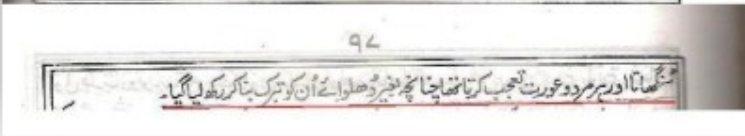 ۹۷
سُنگھاتا اور ہر مرد و عورت تعجب کرتا تھا چنانچہ بغیر دُھلوائے اُن کو تبرک بنا کر رکھ لیا گیا۔